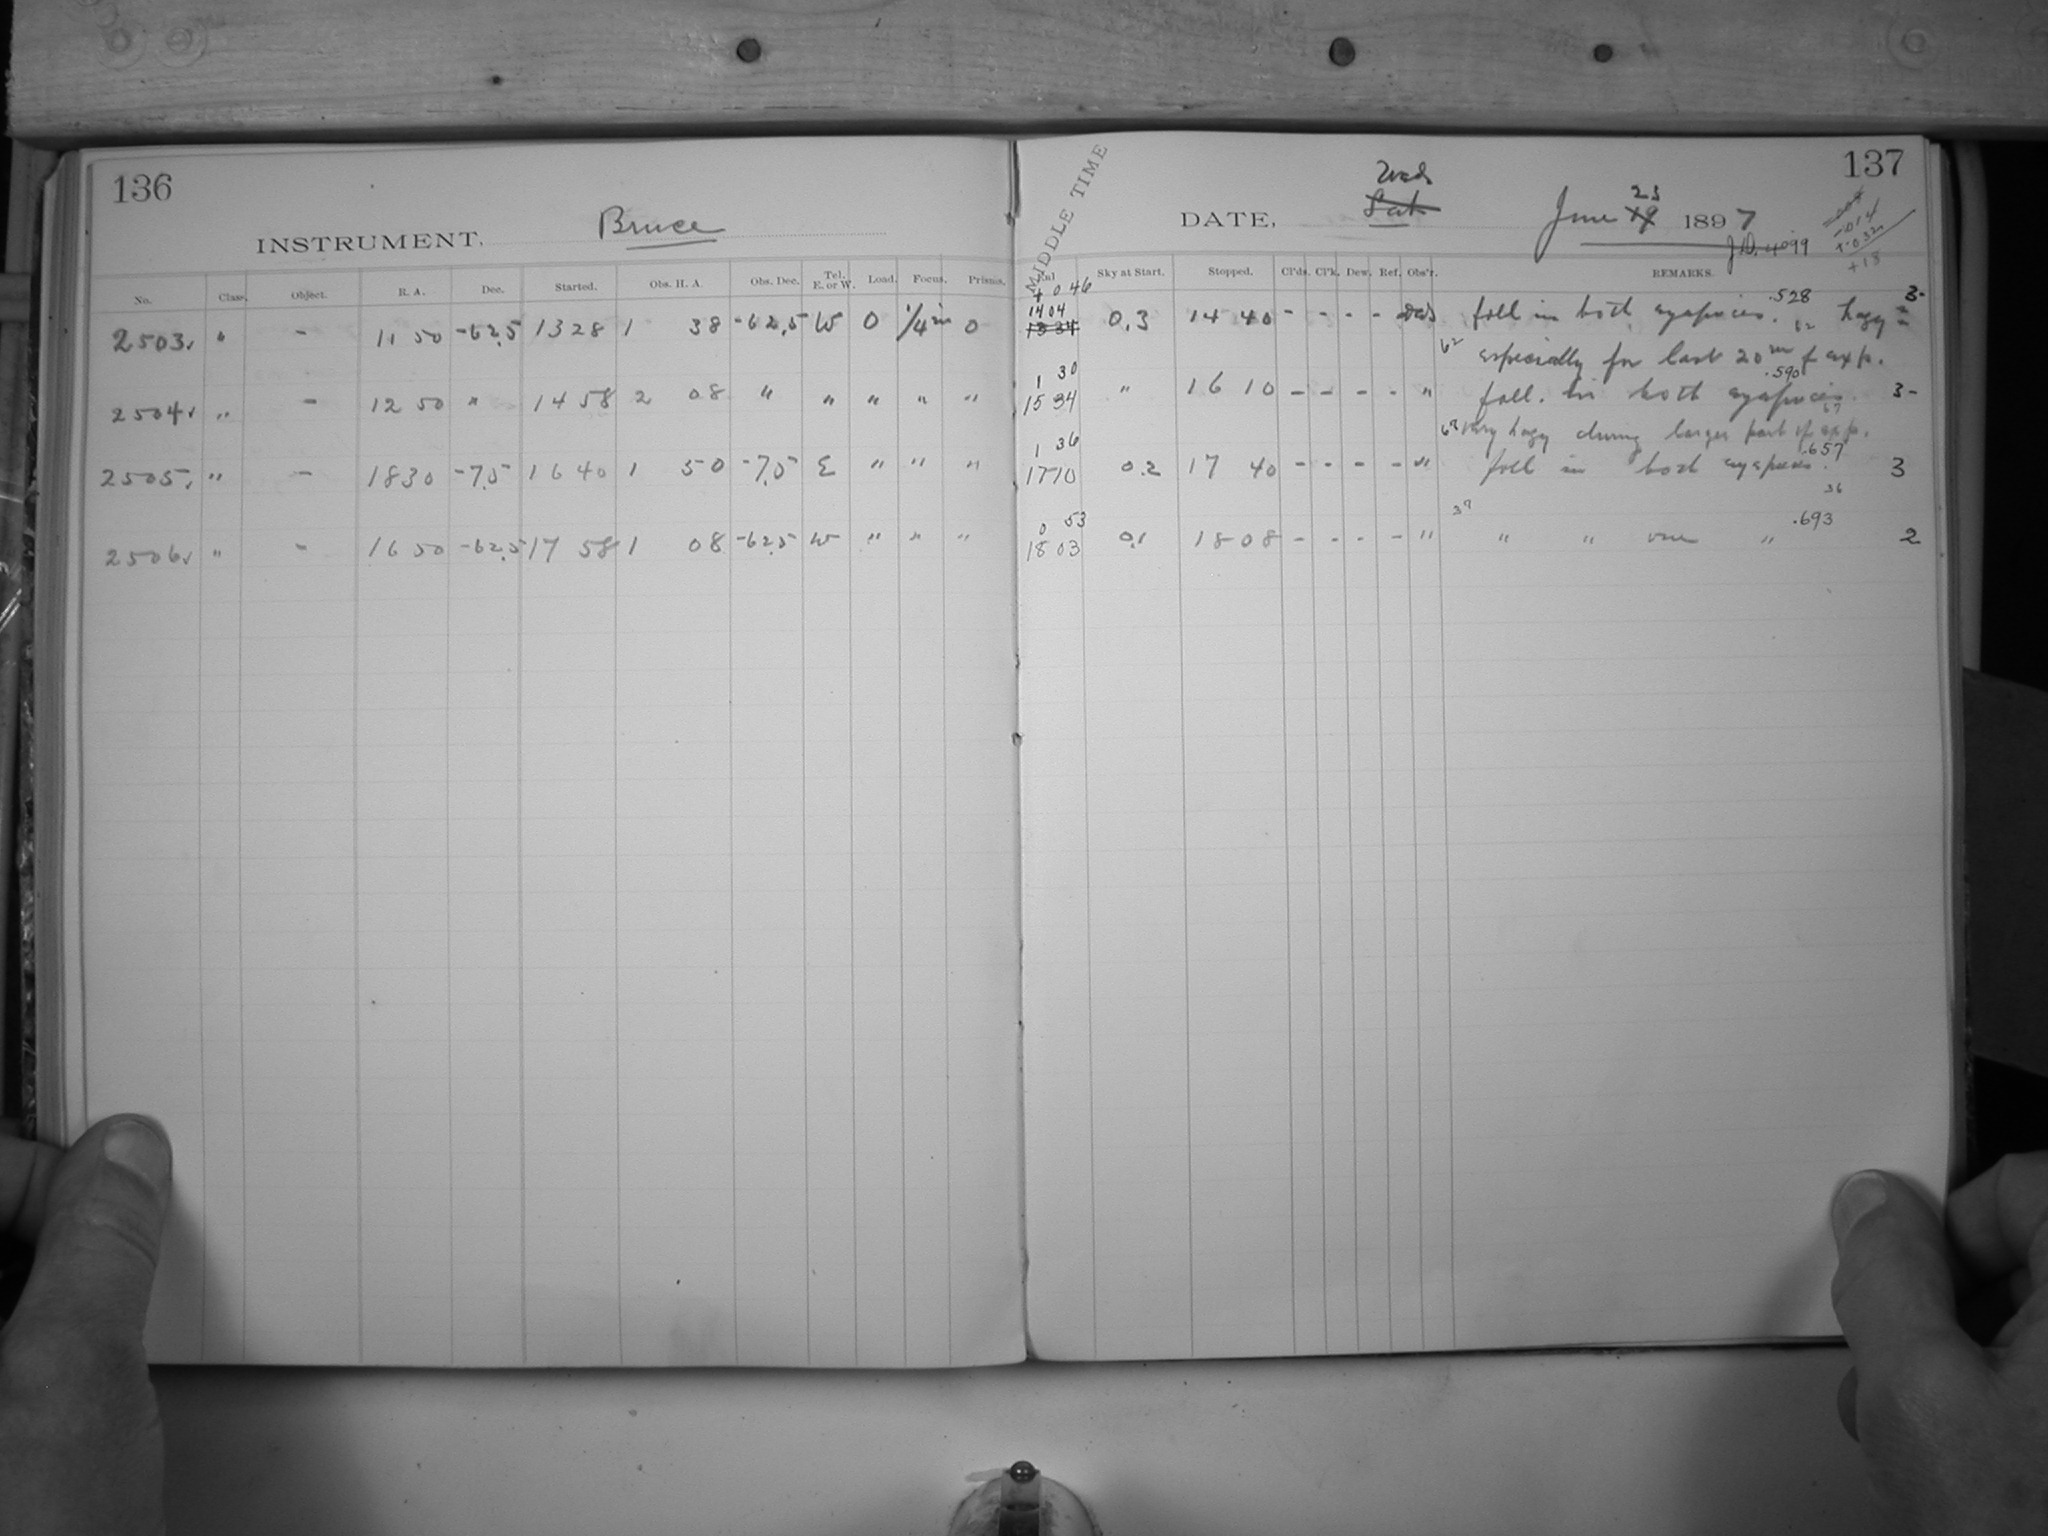 136
INSTRUMENT, Bruce
No. Class. Object. R. A. Dec. Started. Obs. H. A. Obs. Dec. Tel. E. or W. Load. Focus. Prisms.
2503 " - 11 50 -62.5 13 28 1 38 -62.5 W 0 1/4 in 0
2504 " - 12 50 " 14 58 2 08 " " " " "
2505 " - 18 30 -7.5 16 40 1 50 -7.5 E " " "
2506 " - 16 50 -62.5 17 58 1 08 -62.5 W " " "
137
MIDDLE TIME
Wed
DATE, Sat June 23 19 1897
J.D. 4099
+18
Sky at Start. Stopped. Cl'ds. Cl'k. Dew. Ref. Obs'r. REMARKS.
+ 0 46
14 04 0.3 14 40 - - - - foll in both eyepieces. .528 hazy 3-
13 34
62 especially for last 20 m of exp.
1 30 .590
15 34 " 16 10 - - - - " foll. in both eyepieces. 3-
67 very hazy during larger part of exp. 67
1 36 .657
17 10 0.2 17 40 - - - - " foll in both eyepieces. 3
37 36
0 53 .693
18 03 0.1 18 08 - - - - " " " one " 2